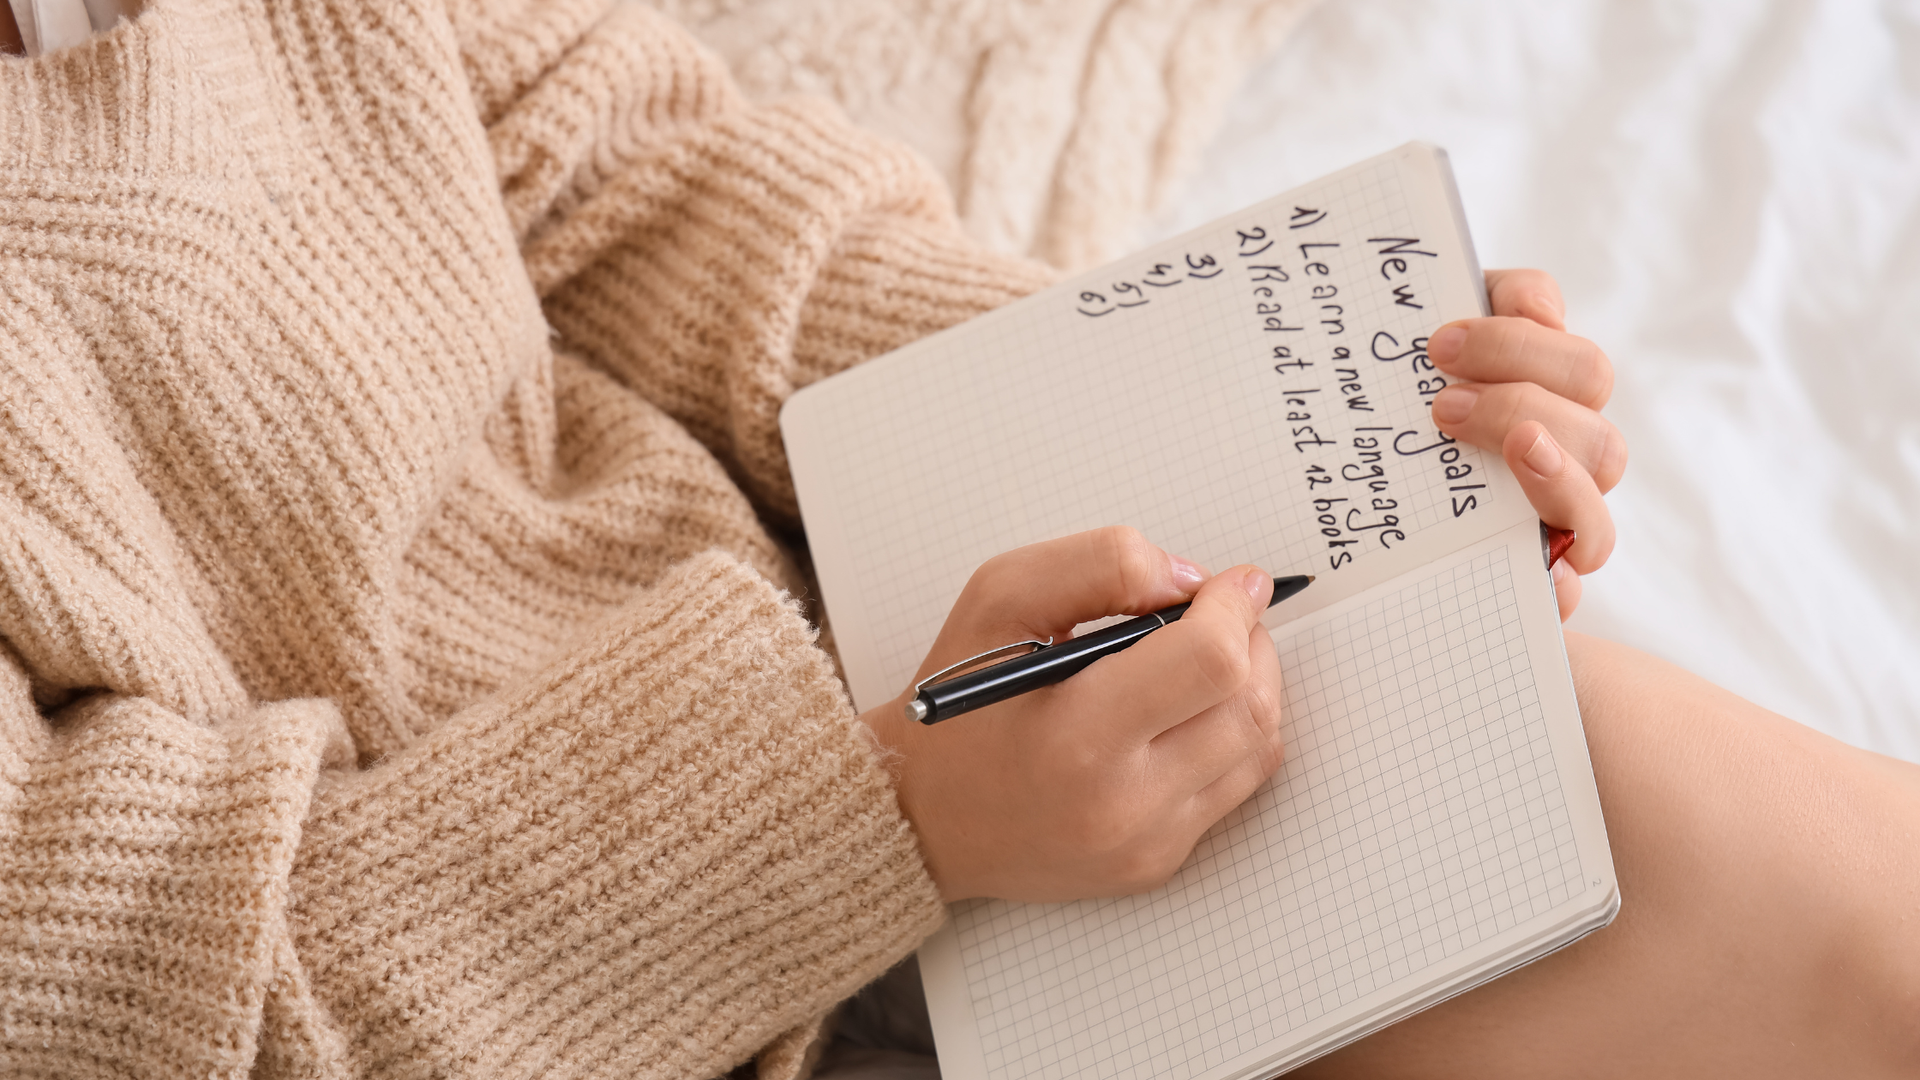 New year goals
1) Learn a new language
2) Read at least 12 books
3)
4)
5)
6)
2